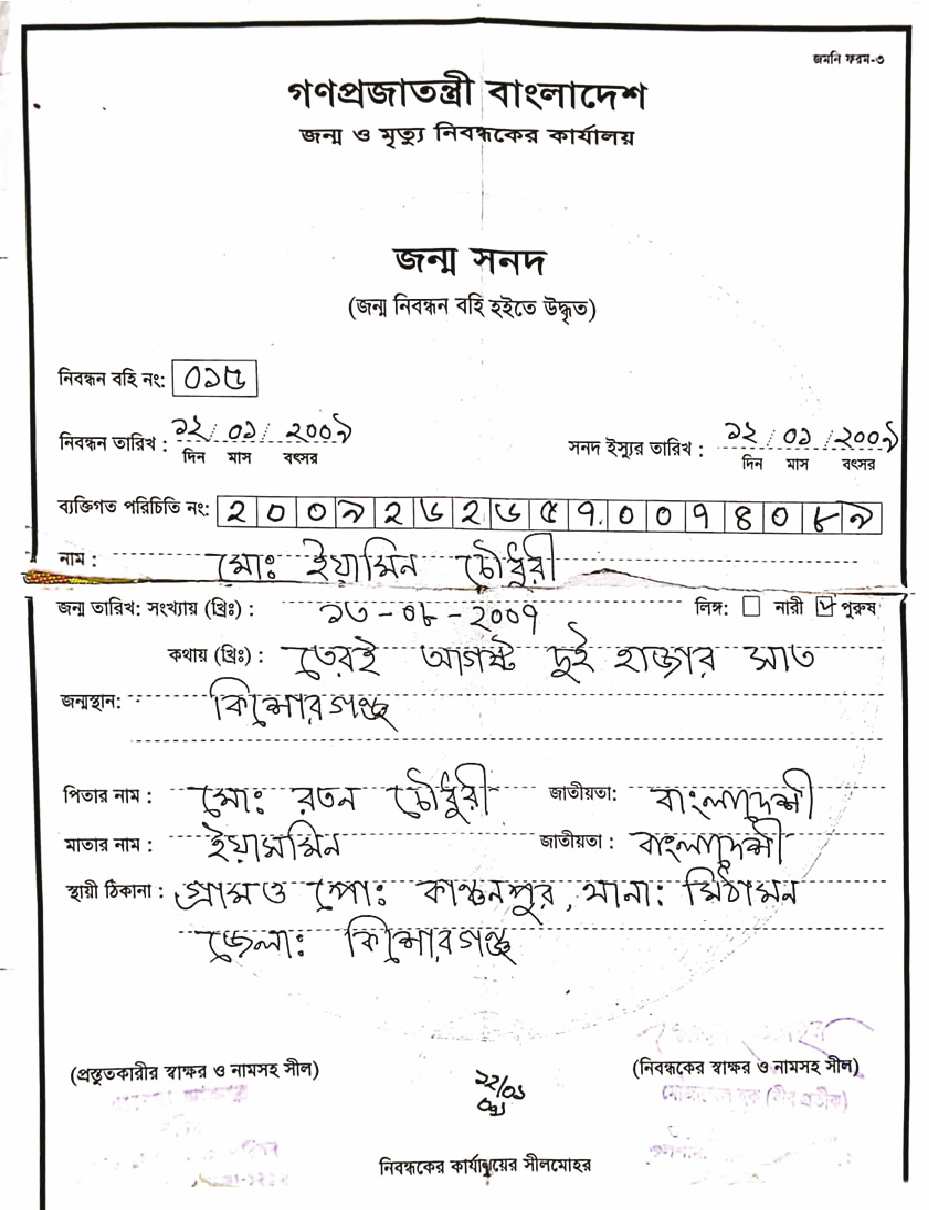 জমনি ফরম-৩
গণপ্রজাতন্ত্রী বাংলাদেশ
জন্ম ও মৃত্যু নিবন্ধকের কার্যালয়
জন্ম সনদ
(জন্ম নিবন্ধন বহি হইতে উদ্ধৃত)
নিবন্ধন বহি নং: ০১৫
নিবন্ধন তারিখ : ১২/ ০১/ ২০০৯ সনদ ইস্যুর তারিখ : ১২ / ০১ /২০০৯
দিন মাস বৎসর দিন মাস বৎসর
ব্যক্তিগত পরিচিতি নং: ২০০৯২৬২৬৫৭.০০৭৪০৮৯
নাম : মোঃ ইয়ামিন চৌধুরী
জন্ম তারিখ: সংখ্যায় (খ্রিঃ) : ১৩-০৮-২০০৭ লিঙ্গ: নারী পুরুষ
কথায় (খ্রিঃ) : তেরই আগষ্ট দুই হাজার সাত
জন্মস্থান: কিশোরগঞ্জ
পিতার নাম : মোঃ রতন চৌধুরী জাতীয়তা: বাংলাদেশী
মাতার নাম : ইয়াসমিন জাতীয়তা : বাংলাদেশী
স্থায়ী ঠিকানা : গ্রাম ও পোঃ কাঞ্চনপুর, থানা: মিঠামন
জেলাঃ কিশোরগঞ্জ
(প্রস্তুতকারীর স্বাক্ষর ও নামসহ সীল) (নিবন্ধকের স্বাক্ষর ও নামসহ সীল)
নিবন্ধকের কার্যালয়ের সীলমোহর